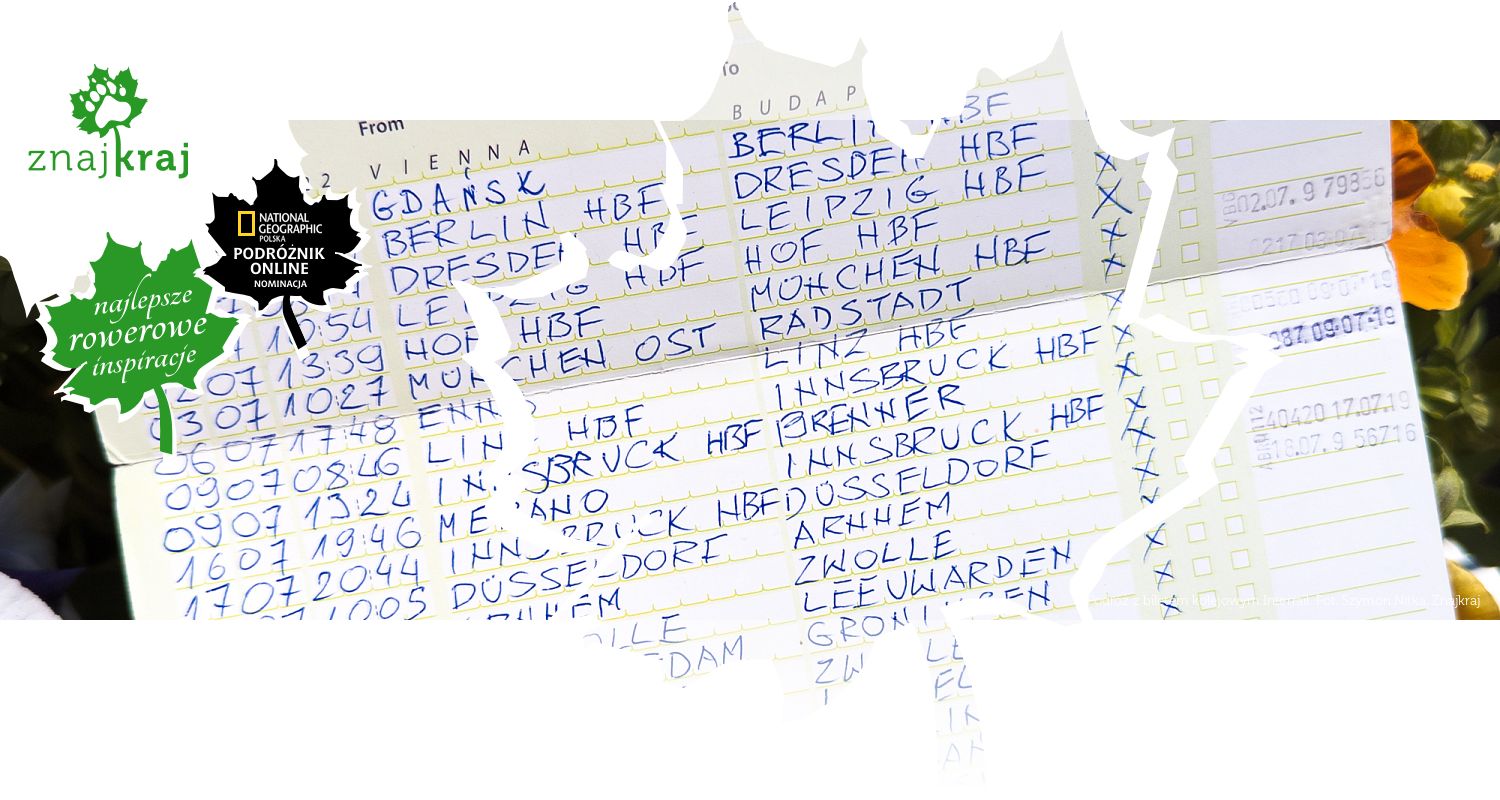 znajkraj
NATIONAL
GEOGRAPHIC
POLSKA
PODRÓŻNIK
ONLINE
NOMINACJA
najlepsze
rowerowe
inspiracje
From To
VIENNA BUDAP
GDAŃSK BERLIN HBF
BERLIN HBF DRESDEN HBF
DRESDEN HBF LEIPZIG HBF
10:54 LEIPZIG HBF HOF HBF
13:39 HOF HBF MÜNCHEN HBF
03 07 10:27 MÜNCHEN OST RADSTADT
06 07 17:48 ENNS LINZ HBF
09 07 08:46 LINZ HBF INNSBRUCK HBF
09 07 13:24 INNSBRUCK HBF BRENNER
16 07 19:46 MERANO INNSBRUCK HBF
17 07 20:44 INNSBRUCK HBF DÜSSELDORF
10:05 DÜSSELDORF ARNHEM
ARNHEM ZWOLLE
LEEUWARDEN
DAM GRON
ZW
02.07. 9 79856
087 09.07.19
40420 17.07.19
18.07. 9 56716
z biletem kolejowym Interrail. Fot. Szymon Nitka, Znajkraj